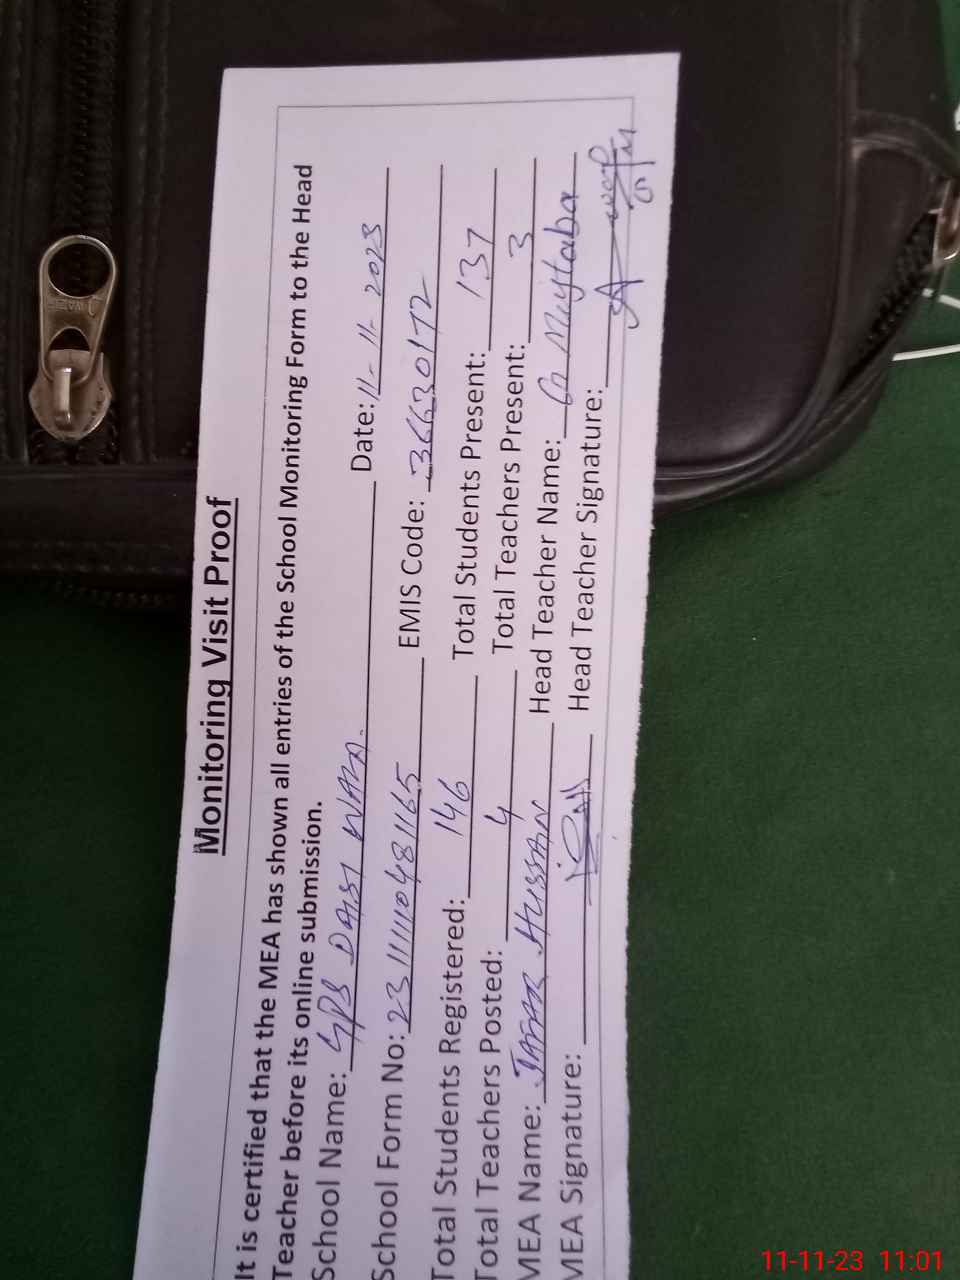 Monitoring Visit Proof
It is certified that the MEA has shown all entries of the School Monitoring Form to the Head
Teacher before its online submission.
School Name: GPS DAISI WALA. Date: 11-11-2023
School Form No: 2311110481165 EMIS Code: 36630172
Total Students Registered: 146 Total Students Present: 137
Total Teachers Posted: 4 Total Teachers Present: 3
MEA Name: JAFAR HUSSAIN Head Teacher Name: G Mujtaba
MEA Signature: Head Teacher Signature:
11-11-23 11:01